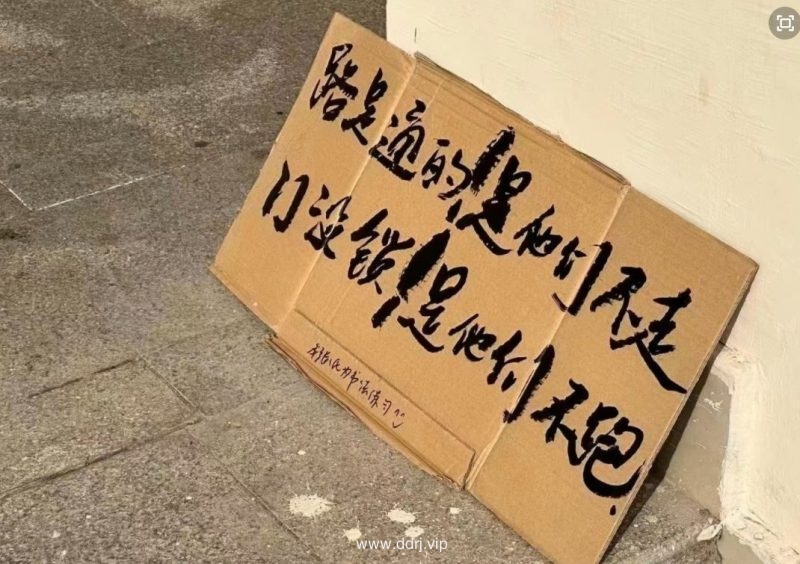 路是通的,是他们不走
门没锁,是他们不跑.
书法练习
www.ddrj.vip